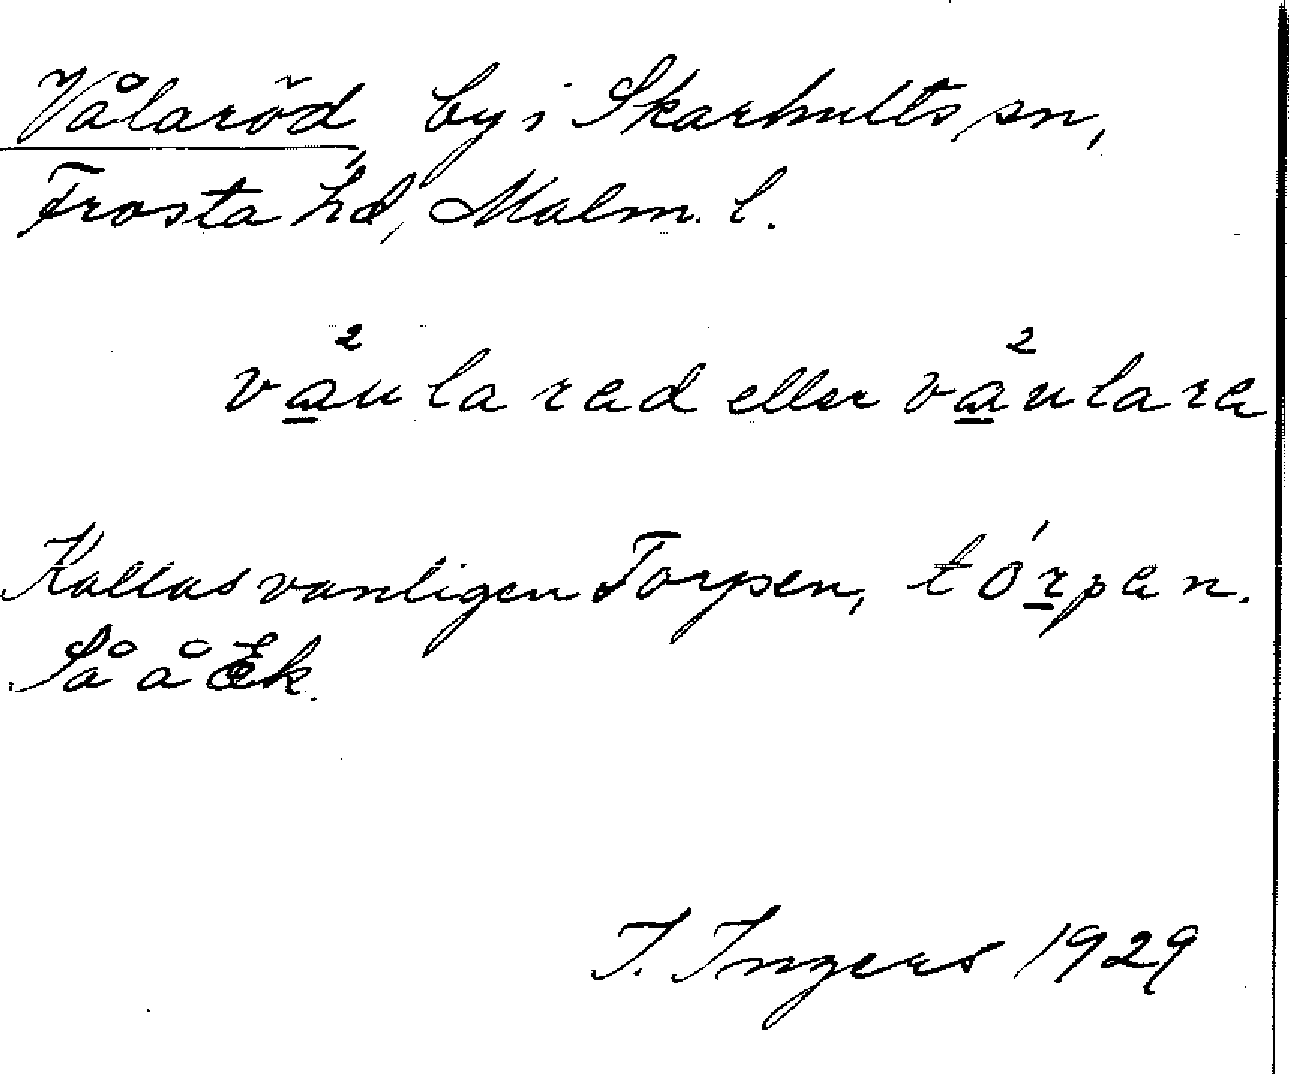 Vålaröd, by i Skarhults sn,
Frosta hd, Malm. l.
va²ularad eller va²ulara
Kallas vanligen Torpen, tórpan.
Så å Ek.
I. Ingers 1929